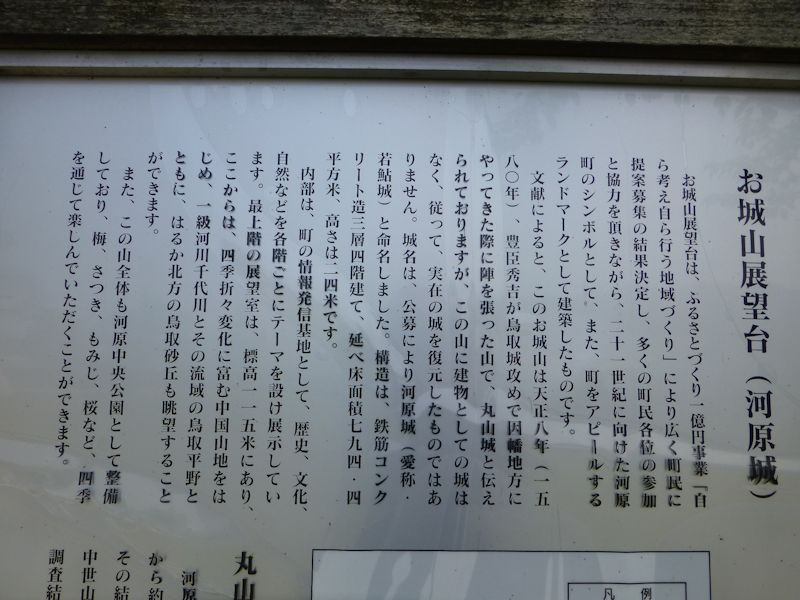 お城山展望台（河原城）
お城山展望台は、ふるさとづくり一億円事業「自
ら考え自ら行う地域づくり」により広く町民に
提案募集の結果決定し、多くの町民各位の参加
と協力を頂きながら、二十一世紀に向けた河原
町のシンボルとして、また、町をアピールする
ランドマークとして建築したものです。
文献によると、このお城山は天正八年（一五
八〇年）、豊臣秀吉が鳥取城攻めで因幡地方に
やってきた際に陣を張った山で、丸山城と伝え
られておりますが、この山に建物としての城は
なく、従って、実在の城を復元したものではあ
りません。城名は、公募により河原城（愛称・
若鮎城）と命名しました。構造は、鉄筋コンク
リート造三層四階建て、延べ床面積七九四・四
平方米、高さは二四米です。
内部は、町の情報発信基地として、歴史、文化、
自然などを各階ごとにテーマを設け展示してい
ます。最上階の展望室は、標高一一五米にあり、
ここからは、四季折々変化に富む中国山地をは
じめ、一級河川千代川とその流域の鳥取平野と
ともに、はるか北方の鳥取砂丘も眺望すること
ができます。
また、この山全体も河原中央公園として整備
しており、梅、さつき、もみじ、桜など、四季
を通じて楽しんでいただくことができます。
丸山
河原
から約
その結
中世山
調査結
凡例